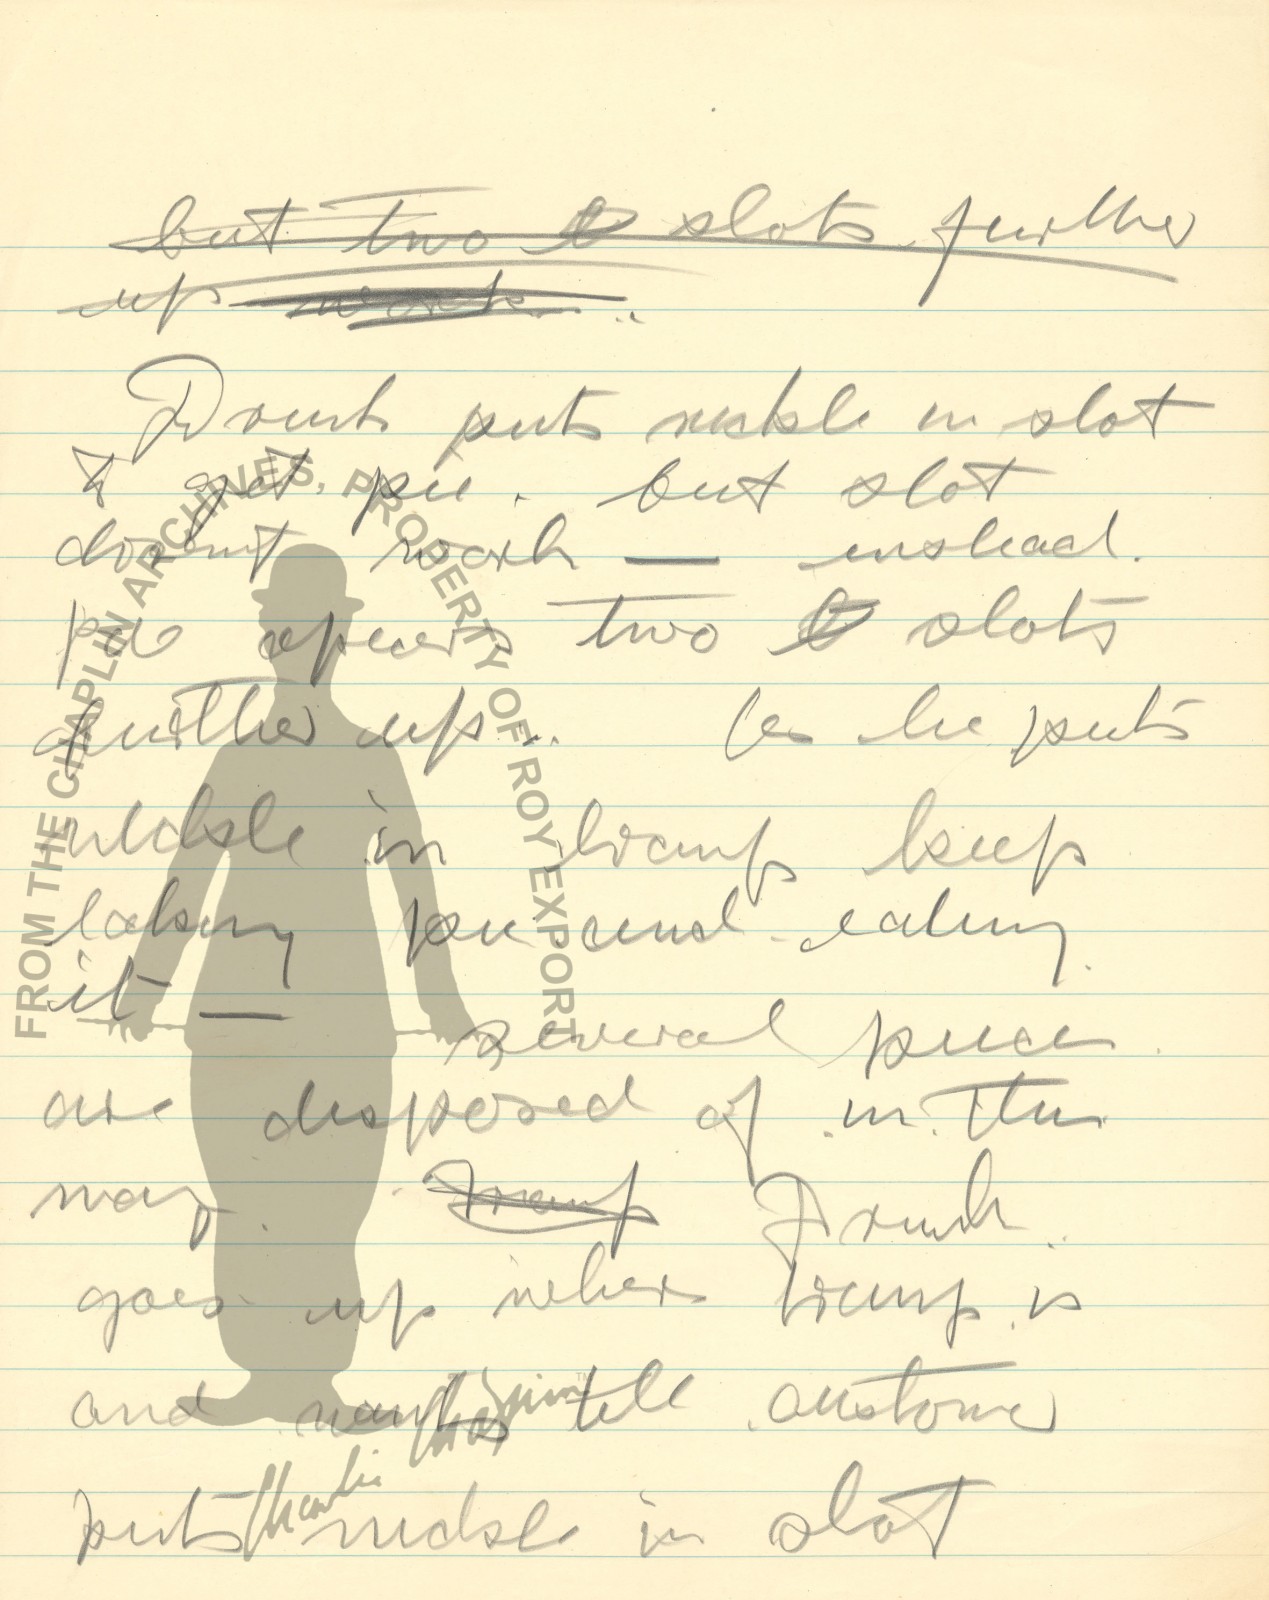 but two slots further
up work..
Drunk puts nickle in slot
& get pie. but slot
doesn't work — instead.
pie opens two slots
further up.. as he puts
nickle in tramp keep
taking pie and eating
it —
several pieces
are disposed of in this
way. Tramp Drunk
goes up where tramp is
and waits till customer
puts nickle in slot
FROM THE CHAPLIN ARCHIVES, PROPERTY OF ROY EXPORT
Charlie Chaplin™